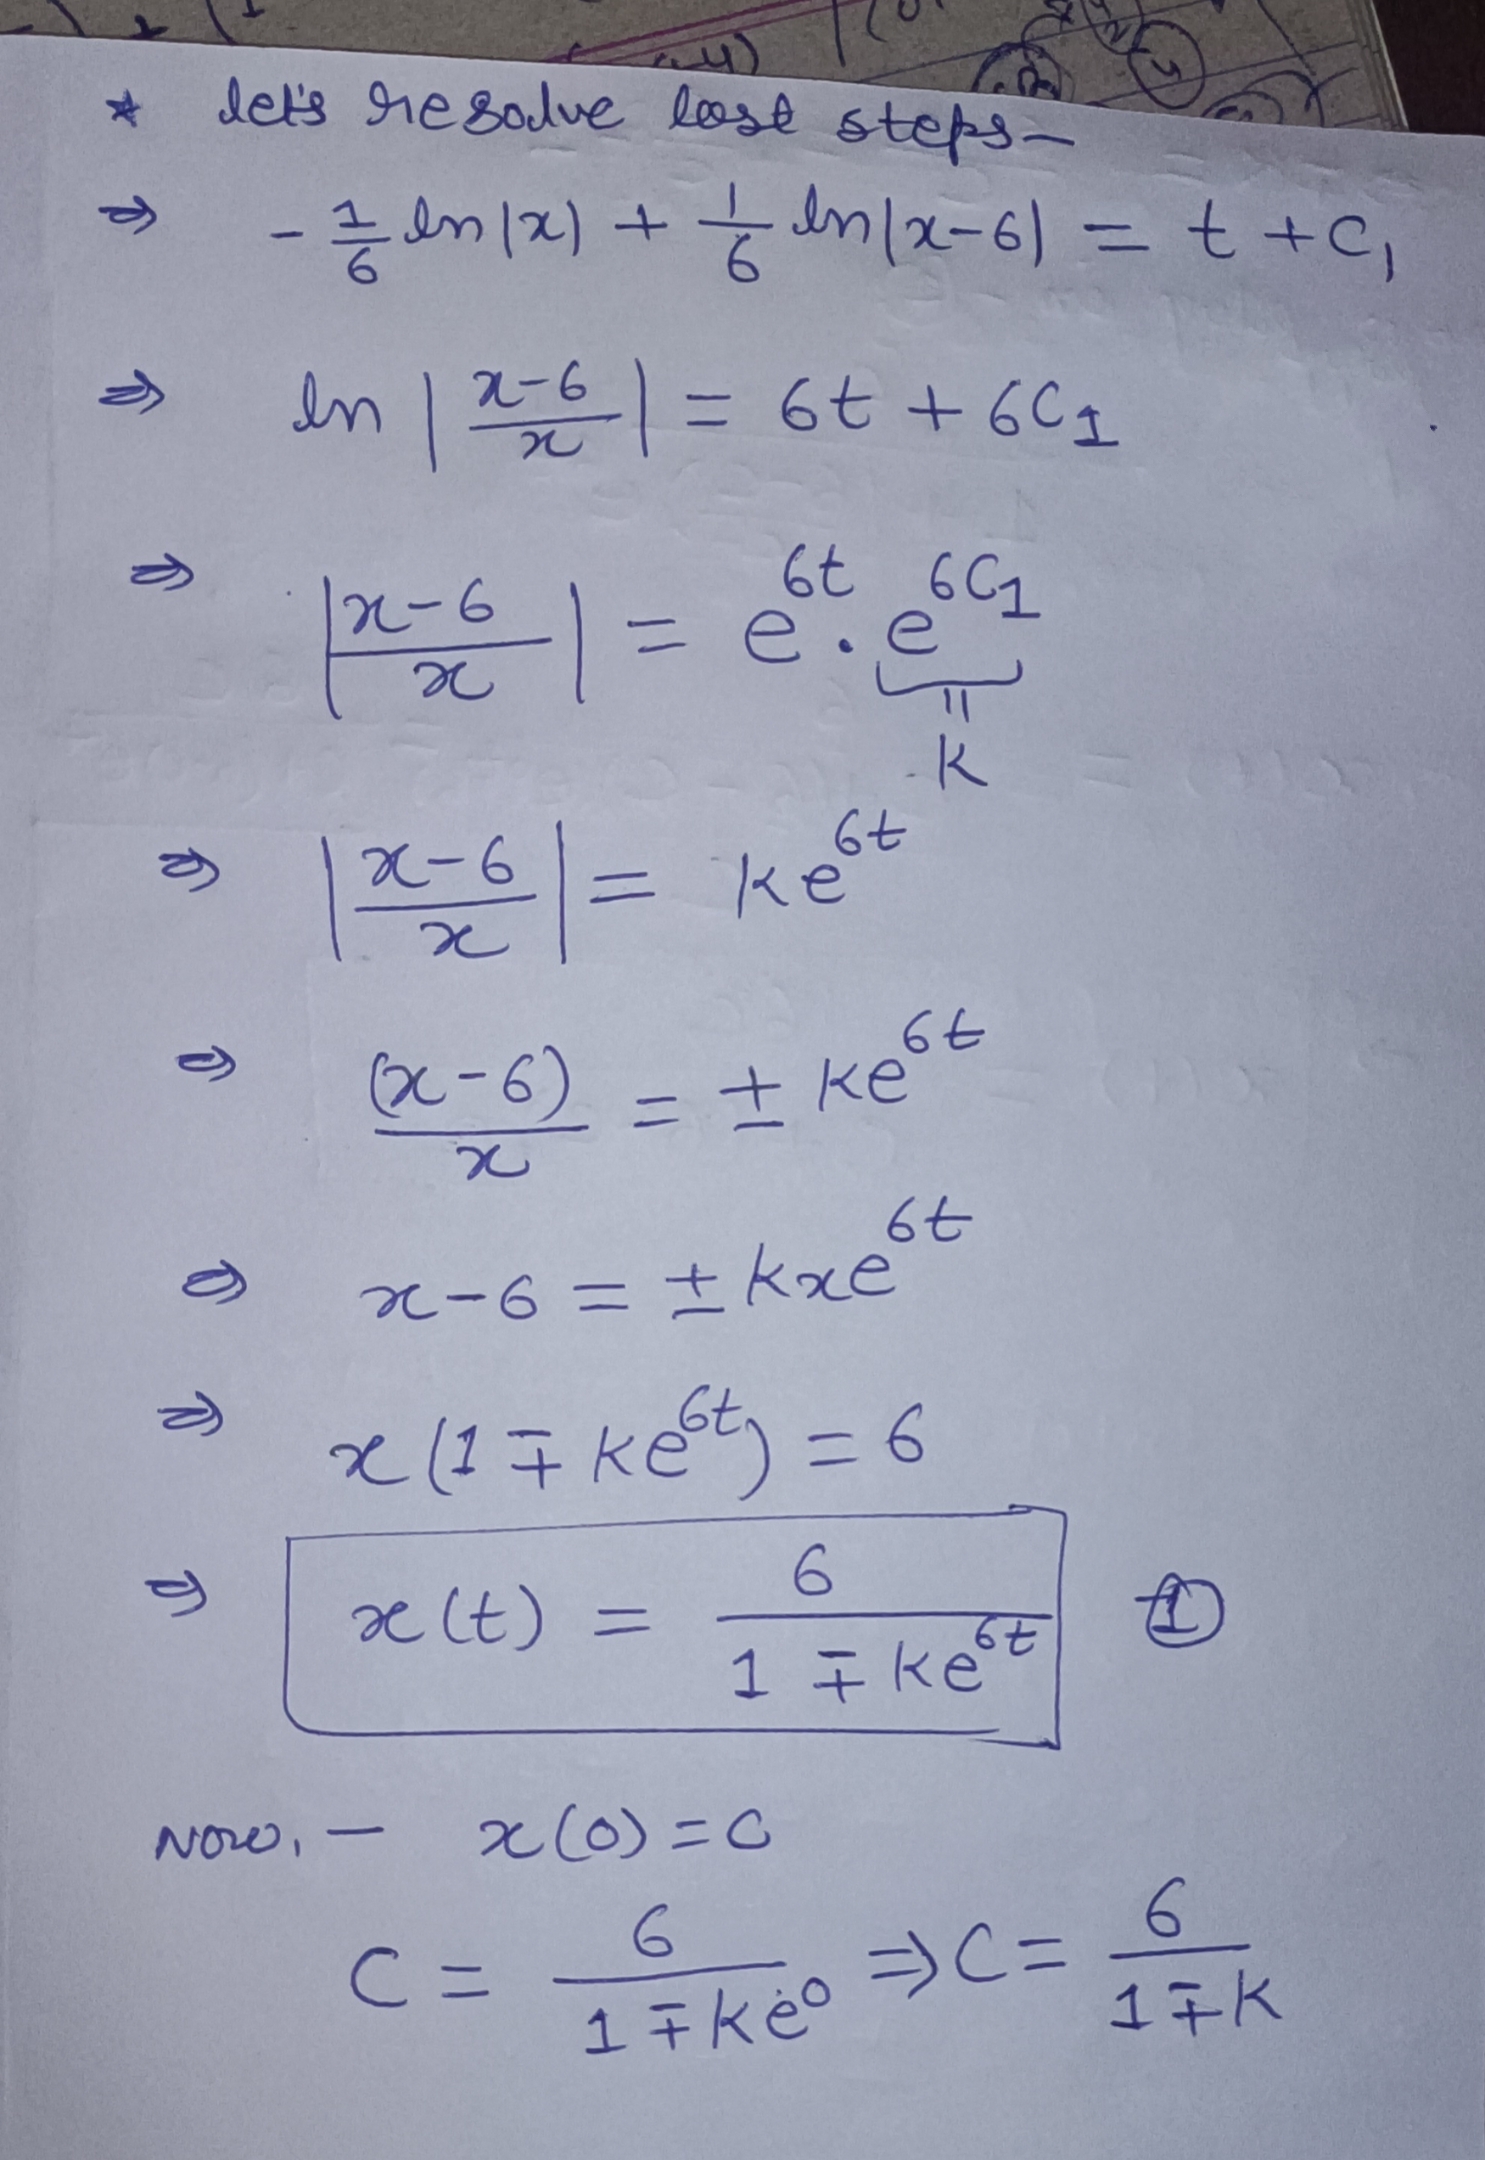 * let's resolve last steps-
⇒ -1/6 ln|x| + 1/6 ln|x-6| = t + C₁
⇒ ln |(x-6)/x| = 6t + 6C₁
⇒ |(x-6)/x| = e^{6t} . e^{6C₁}
॥
K
⇒ |(x-6)/x| = ke^{6t}
⇒ (x-6)/x = ± ke^{6t}
⇒ x-6 = ± kxe^{6t}
⇒ x(1 ∓ ke^{6t}) = 6
⇒ x(t) = 6/(1 ∓ ke^{6t}) ①
Now, - x(0) = C
C = 6/(1 ∓ ke^0) ⇒ C = 6/(1 ∓ K)